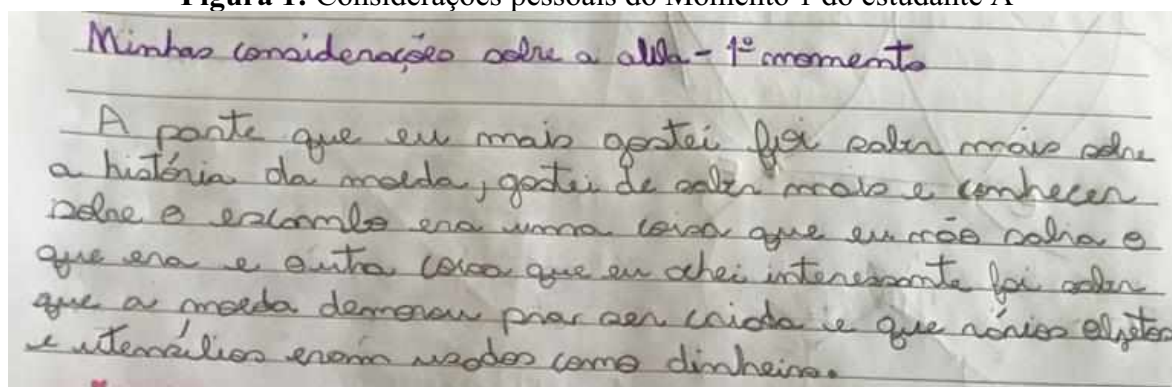 Figura 1: Considerações pessoais do Momento 1 do estudante A
Minhas considerações sobre a aula - 1º momento
A parte que eu mais gostei foi saber mais sobre
a história da moeda, gostei de saber mais e conhecer
sobre o escambo era uma coisa que eu não sabia o
que era e outra coisa que eu achei interessante foi saber
que a moeda demorou prar ser criada e que vários objetos
e utensílios eram usados como dinheiro.